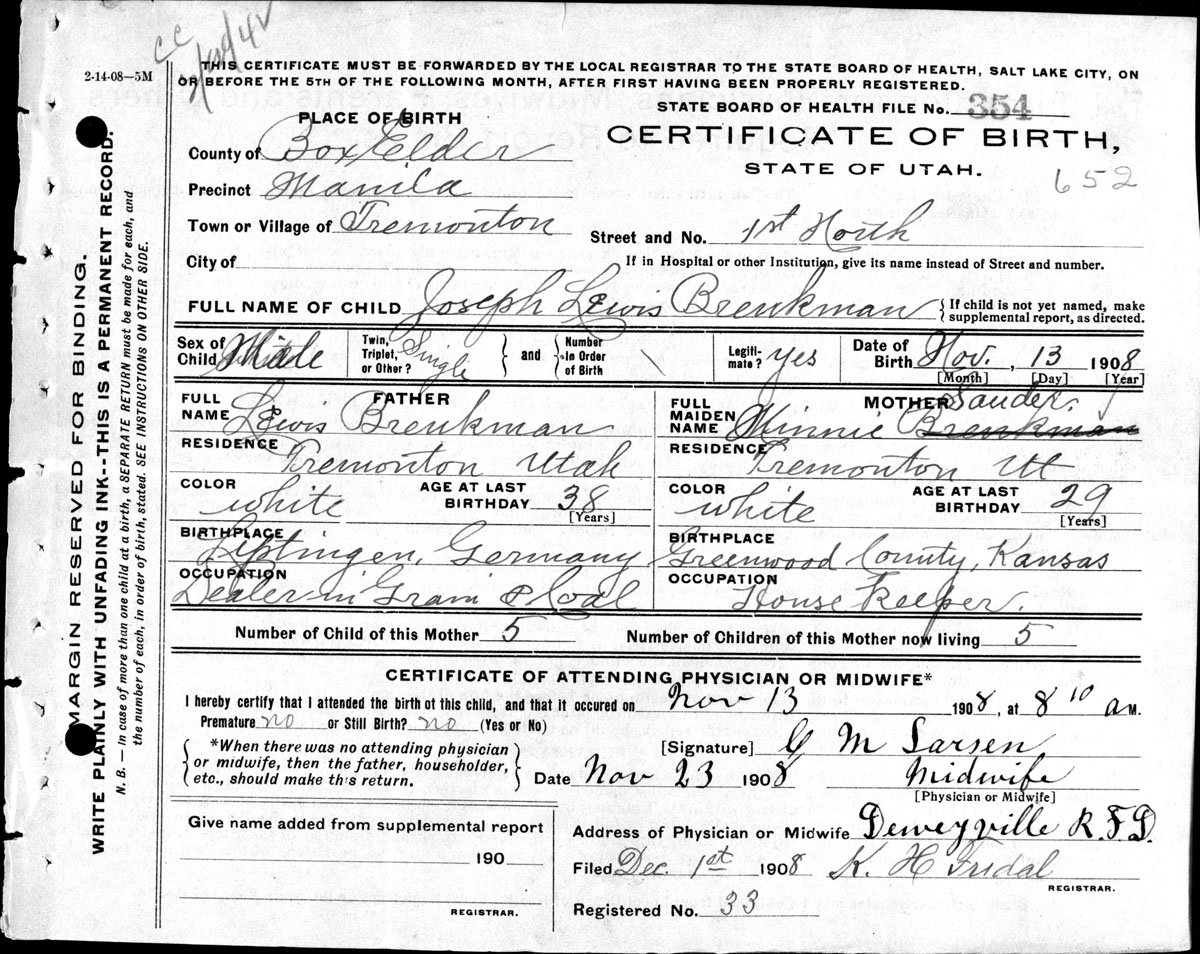 CC
2-14-08—5M
THIS CERTIFICATE MUST BE FORWARDED BY THE LOCAL REGISTRAR TO THE STATE BOARD OF HEALTH, SALT LAKE CITY, ON
OR BEFORE THE 5TH OF THE FOLLOWING MONTH, AFTER FIRST HAVING BEEN PROPERLY REGISTERED.
STATE BOARD OF HEALTH FILE No. 354
PLACE OF BIRTH
CERTIFICATE OF BIRTH,
STATE OF UTAH.
652
County of Box Elder
Precinct Manila
Town or Village of Tremonton
Street and No. 1st North
City of
If in Hospital or other Institution, give its name instead of Street and number.
FULL NAME OF CHILD Joseph Lewis Brenkman { If child is not yet named, make
supplemental report, as directed.
Sex of Child Male
Twin, Triplet, or Other? Single } and { Number in Order of Birth \
Legiti-mate? yes
Date of Birth Nov. , 13 1908
[Month] [Day] [Year]
FATHER
FULL NAME Lewis Brenkman
RESIDENCE Tremonton Utah
COLOR white AGE AT LAST BIRTHDAY 38
[Years]
BIRTHPLACE Liptingen, Germany
OCCUPATION Dealer in Grain & Coal
MOTHER
FULL MAIDEN NAME Minnie Brenkman Sander
RESIDENCE Tremonton Ut
COLOR white AGE AT LAST BIRTHDAY 29
[Years]
BIRTHPLACE Greenwood County, Kansas
OCCUPATION House Keeper.
Number of Child of this Mother 5 Number of Children of this Mother now living 5
CERTIFICATE OF ATTENDING PHYSICIAN OR MIDWIFE*
I hereby certify that I attended the birth of this child, and that it occured on Nov 13 1908, at 8 10 a M.
Premature no or Still Birth? no (Yes or No)
{ *When there was no attending physician
or midwife, then the father, householder,
etc., should make this return. }
[Signature] G M Larsen
Date Nov 23 1908 Midwife
[Physician or Midwife]
Give name added from supplemental report
190
REGISTRAR.
Address of Physician or Midwife Deweyville R.F.D.
Filed Dec. 1st 1908 K. H. Fridal
REGISTRAR.
Registered No. 33
MARGIN RESERVED FOR BINDING.
WRITE PLAINLY WITH UNFADING INK--THIS IS A PERMANENT RECORD.
N. B. — In case of more than one child at a birth, a SEPARATE RETURN must be made for each, and
the number of each, in order of birth, stated. SEE INSTRUCTIONS ON OTHER SIDE.